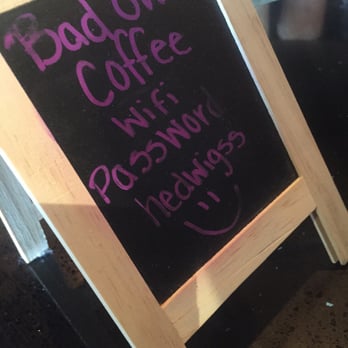 Bad
Coffee
wifi
Password
hedwigss